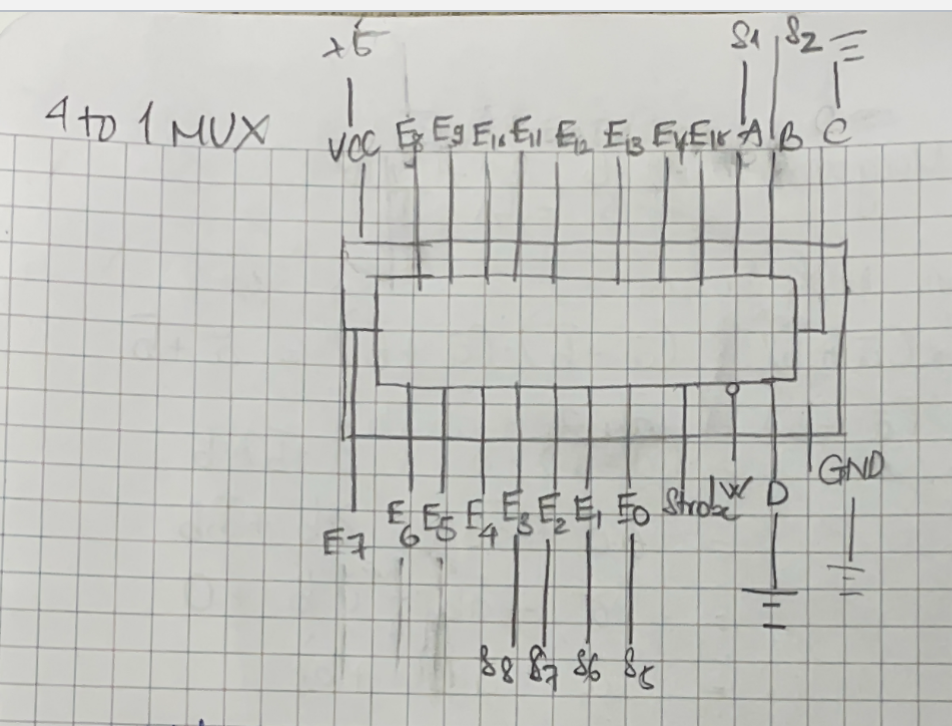 +5 S1 S2
4 to 1 MUX
VCC E8 E9 E10 E11 E12 E13 E14 E15 A B C
GND
E7 E6 E5 E4 E3 E2 E1 E0 Strobe W D
S8 S7 S6 S5